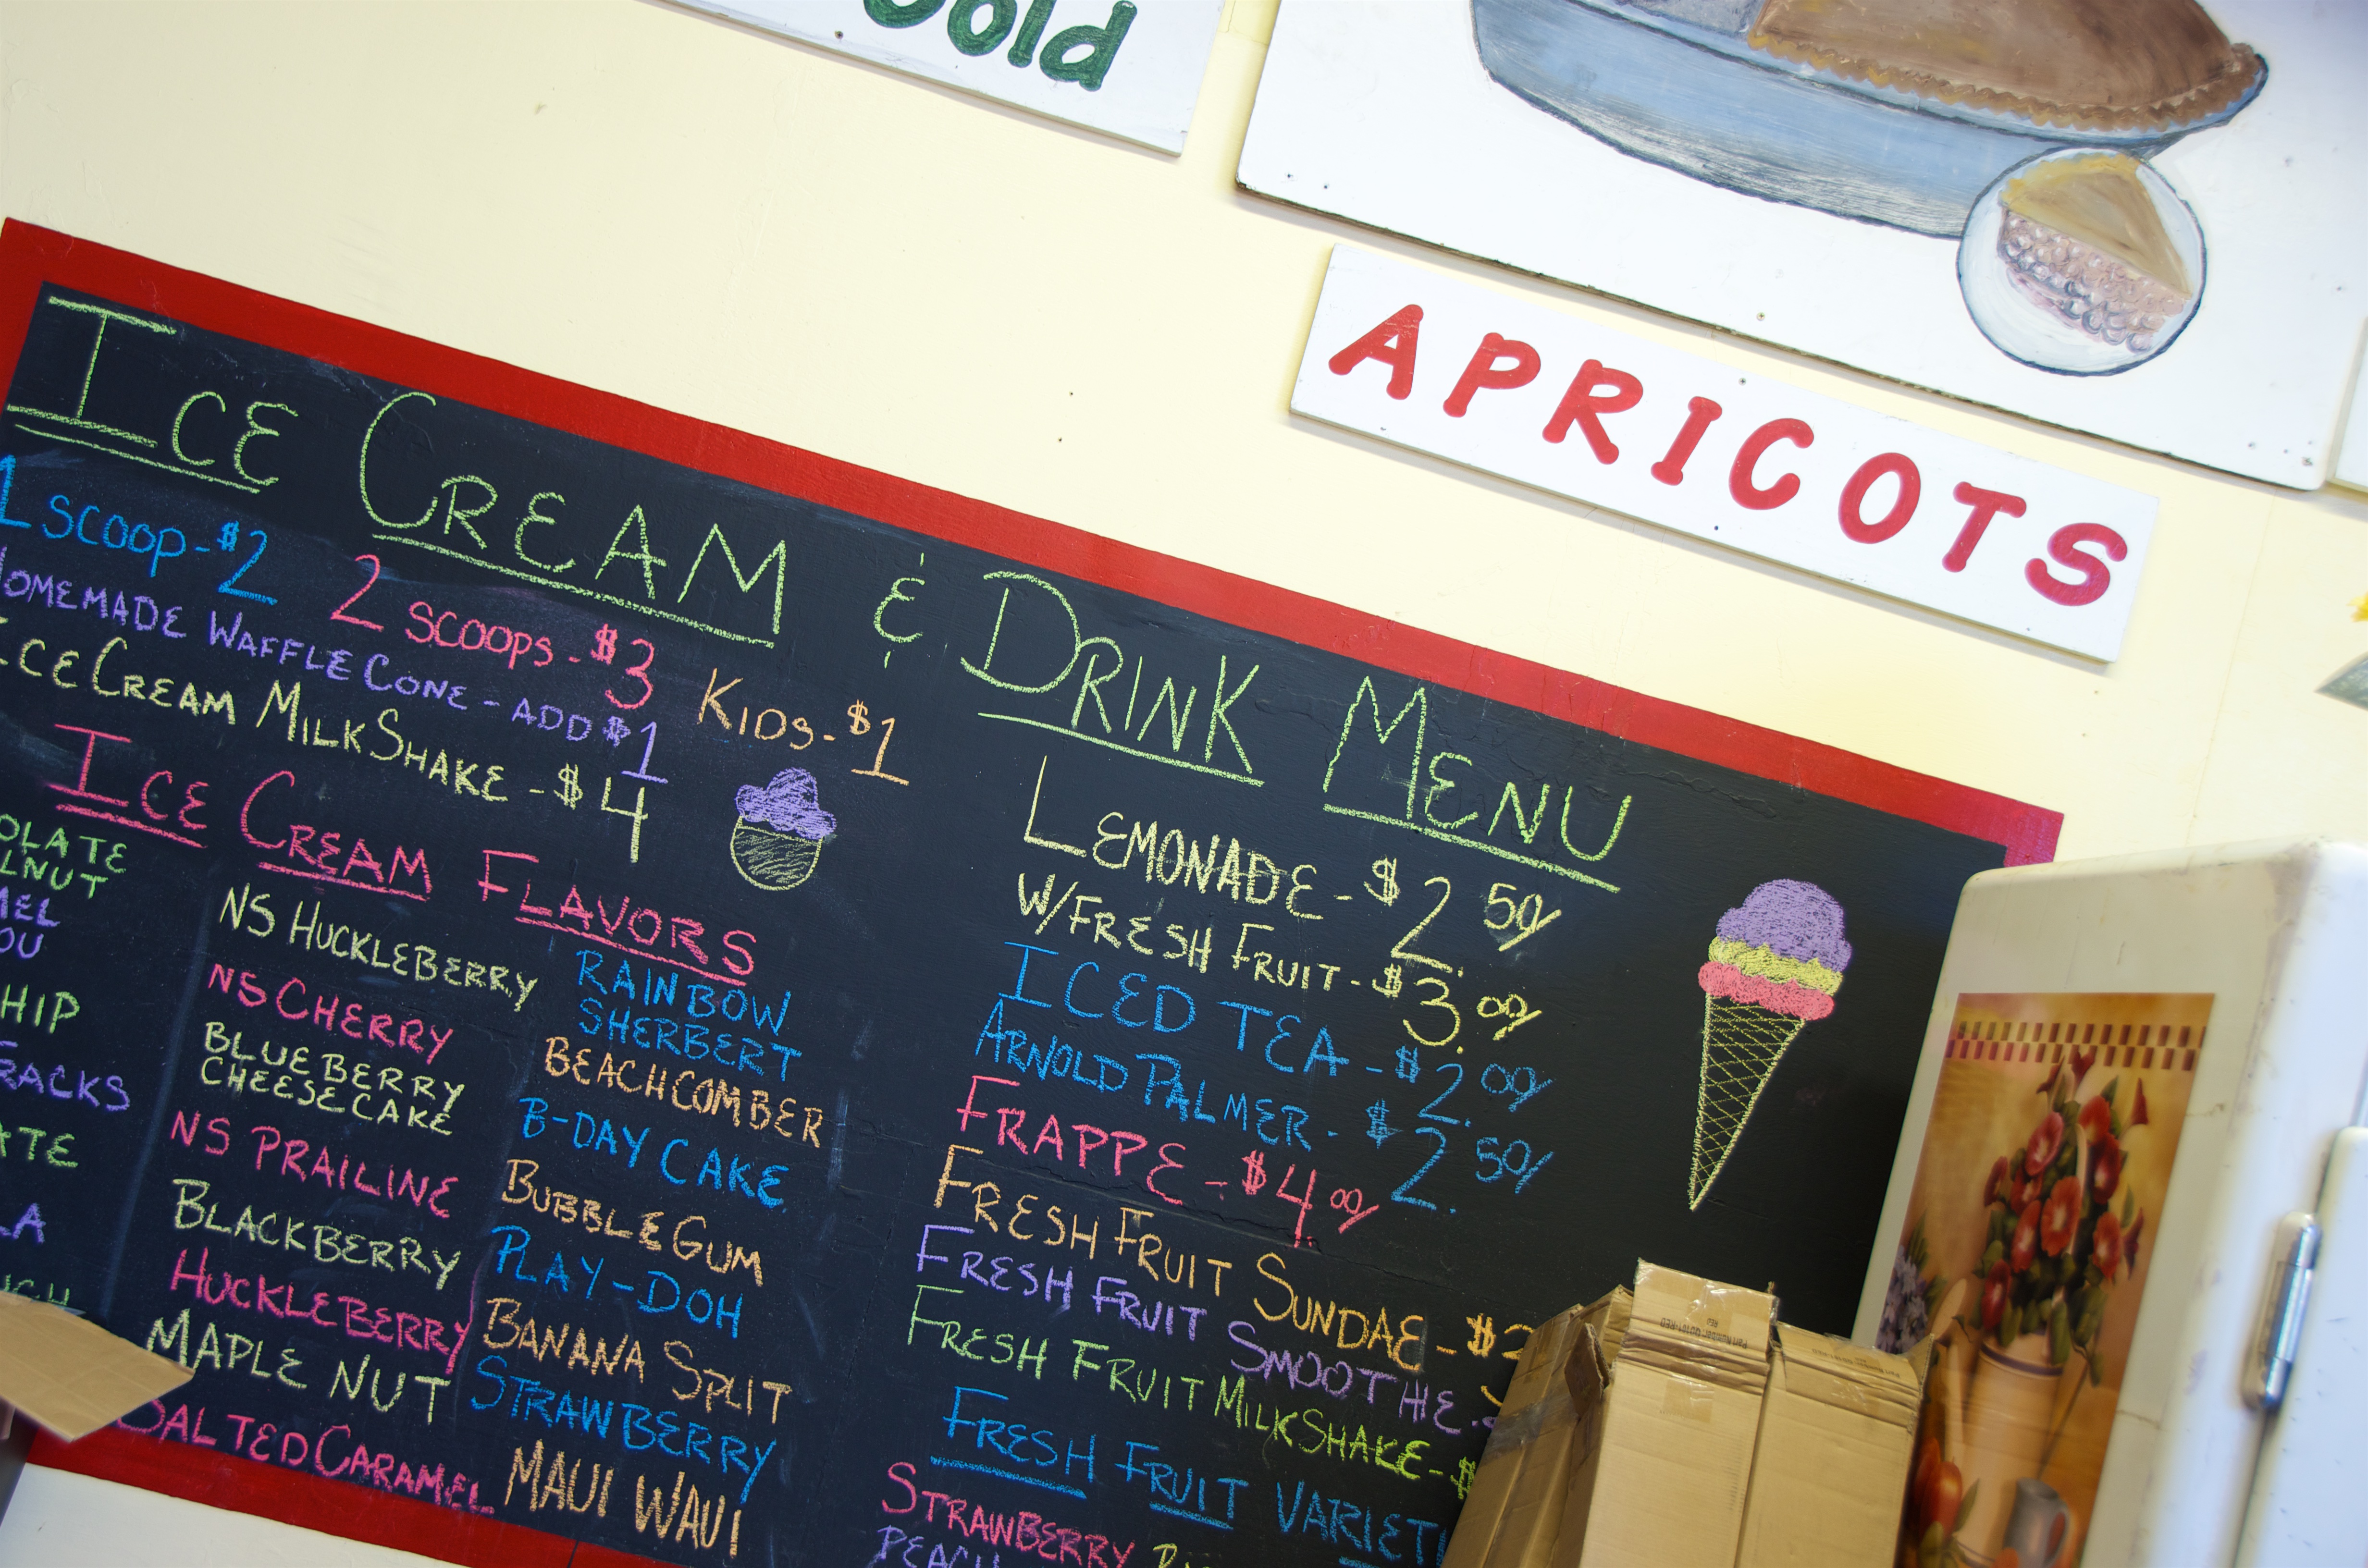 Cold
APRICOTS
ICE CREAM & DRINK MENU
1 SCOOP - $2 2 SCOOPS - $3 KIDS - $1
HOMEMADE WAFFLE CONE - ADD $1
ICE CREAM MILKSHAKE - $4
ICE CREAM FLAVORS
NS HUCKLEBERRY
NS CHERRY
BLUEBERRY
CHEESECAKE
NS PRAILINE
BLACKBERRY
HUCKLEBERRY
MAPLE NUT
SALTED CARAMEL
RAINBOW
SHERBERT
BEACHCOMBER
B-DAY CAKE
BUBBLEGUM
PLAY-DOH
BANANA SPLIT
STRAWBERRY
MAUI WAUI
LEMONADE - $2.50/
W/FRESH FRUIT - $3.00/
ICED TEA - $2.00/
ARNOLD PALMER - $2.50/
FRAPPE - $4.00/
FRESH FRUIT SUNDAE - $
FRESH FRUIT SMOOTHIE -
FRESH FRUIT MILKSHAKE - $
FRESH FRUIT
STRAWBERRY
PEACH